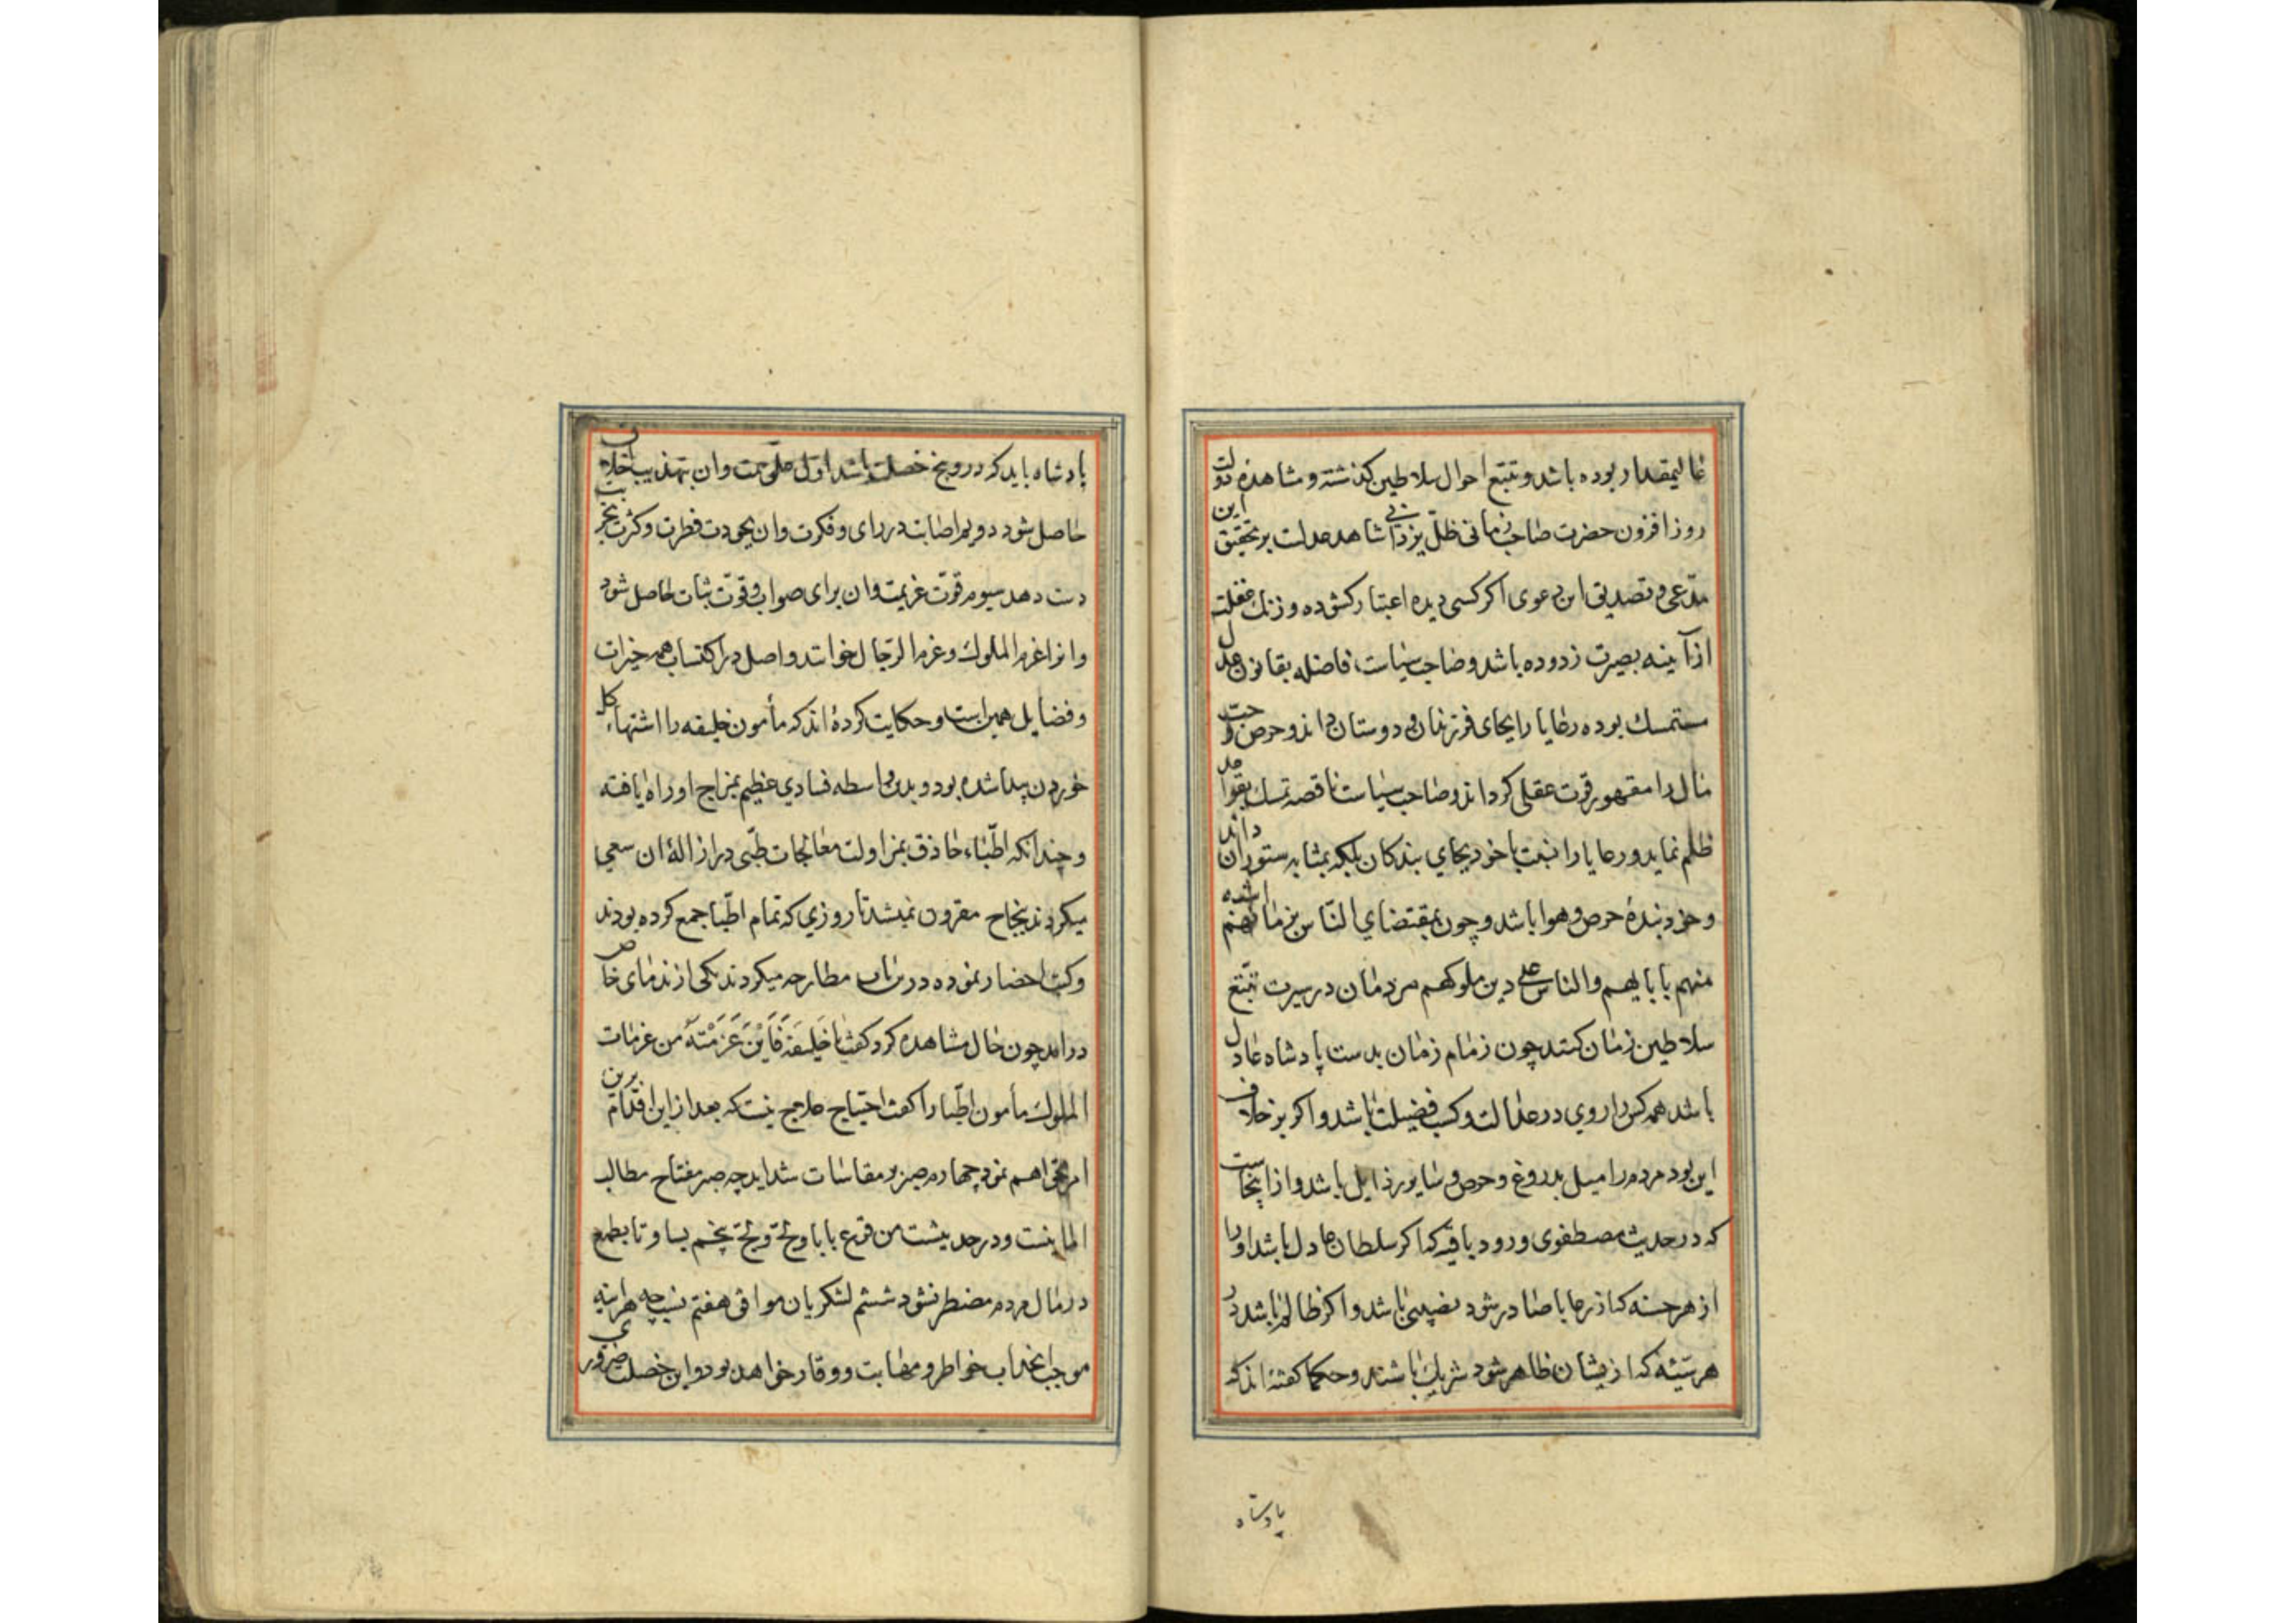 عالیمقدار بوده باشد و تتبع احوال سلاطین کذشته و مشاهده دولت
روز افزون حضرت صاحب زمانی ظلّ یزدانی شاهد عدلست بر تحقیق این
مدّعی و تصدیق این دعوی اکر کسی دیده اعتبار کشوده و زنك غفلت
از آینه بصیرت زدوده باشد و صاحب سیاست فاضله بقانون عدل
مستمسك بوده رعایا را بجای فرزندان و دوستان داند و حرص و حبّ
مال را مقهور قوت عقلی کرداند و صاحب سیاست ناقصه تمسك بقواعد
ظلم نماید و رعایا را نسبت با خود بجای بندکان بلکه بمثابه ستوران داند
و خود بندهٔ حرص و هوا باشد و چون بمقتضای النّاس بزمانهم اشبه
منهم بابایهم والناس علی دین ملوکهم مردمان در سیرت تتبّع
سلاطین زمان کنند چون زمام زمان بدست پادشاه عادل
باشد همه کس را روی در عدالت و کسب فضیلت باشد و اکر بر خلاف
این بود مردم را میل بدروغ و حرص و سایر رذایل باشد و از اینجاست
که در حدیث مصطفوی ورود یافته که اکر سلطان عادل باشد او را
از هر حسنه که از رعایا صادر شود نصیبی باشد و اکر ظالم باشد در
هر سیّئه که از یشان ظاهر شود شریك باشند و حکما کفته اند که
پادشاه
پادشاه باید که درو پنج خصلت باشد اوّل علوّ همت و ان بتهذیب اخلاق
حاصل شود دویم اصابت در رای و فکرت و ان بجودت فطرت و کثرت تجربت
دست دهد سیوم قوّت عزیمت و ان برای صواب و قوّت ثبات حاصل شود
و انرا عزم الملوك و عزم الرّجال خوانند و اصل در اکتساب همه خیرات
و فضایل همین است و حکایت کرده اند که مأمون خلیفه را اشتهاء کل
خوردن پیدا شده بود و بدین واسطه فسادی عظیم بمزاج او راه یافته
و چندانکه اطّباء حاذق بمزاولت معالجات طبّی در ازالهٔ ان سعی
میکردند بنجاح مقرون نمیشد تا روزی که تمام اطّبا جمع کرده بودند
و کتب احضار نموده درین باب مطارحه میکردند یکی از ندمای خاص
درامد چون حال مشاهده کرد کفت یا خَلِیفَة فَاَیْنَ عَزَمْتَه من عزمات
الملوك مأمون اطّبا را کفت احتیاج علاج نیست که بعد ازین اقدام برین
امر نخواهم نمود چهارم صبر بر مقاسات شداید چه صبر مفتاح مطالب
المابنست و در حدیثست من قرع بابا و لجّ و لجّ پنجم یسار تا بطمع
در مال مردم مضطر نشود ششم لشکریان موافق هفتم نسب چه هراینه
موجب انجذاب خواطر و مهابت و وقار خواهد بود و این خصلت ضروری